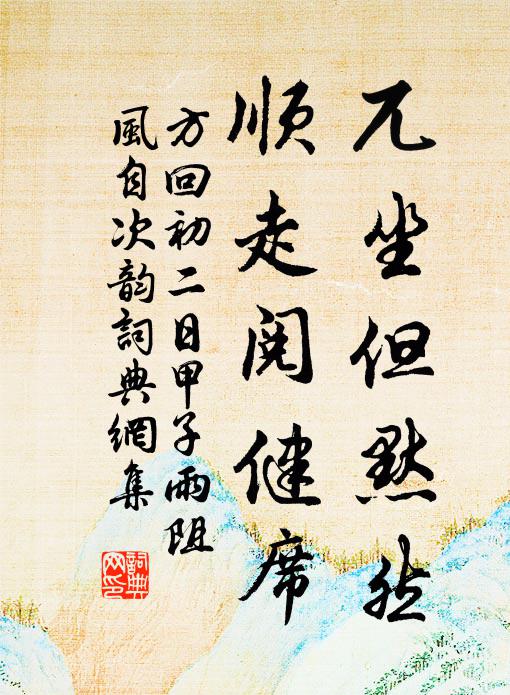 兀坐但默然
順走閱健席
方回初二日甲子雨阻
風自次韵詞典網集
詞典
网印